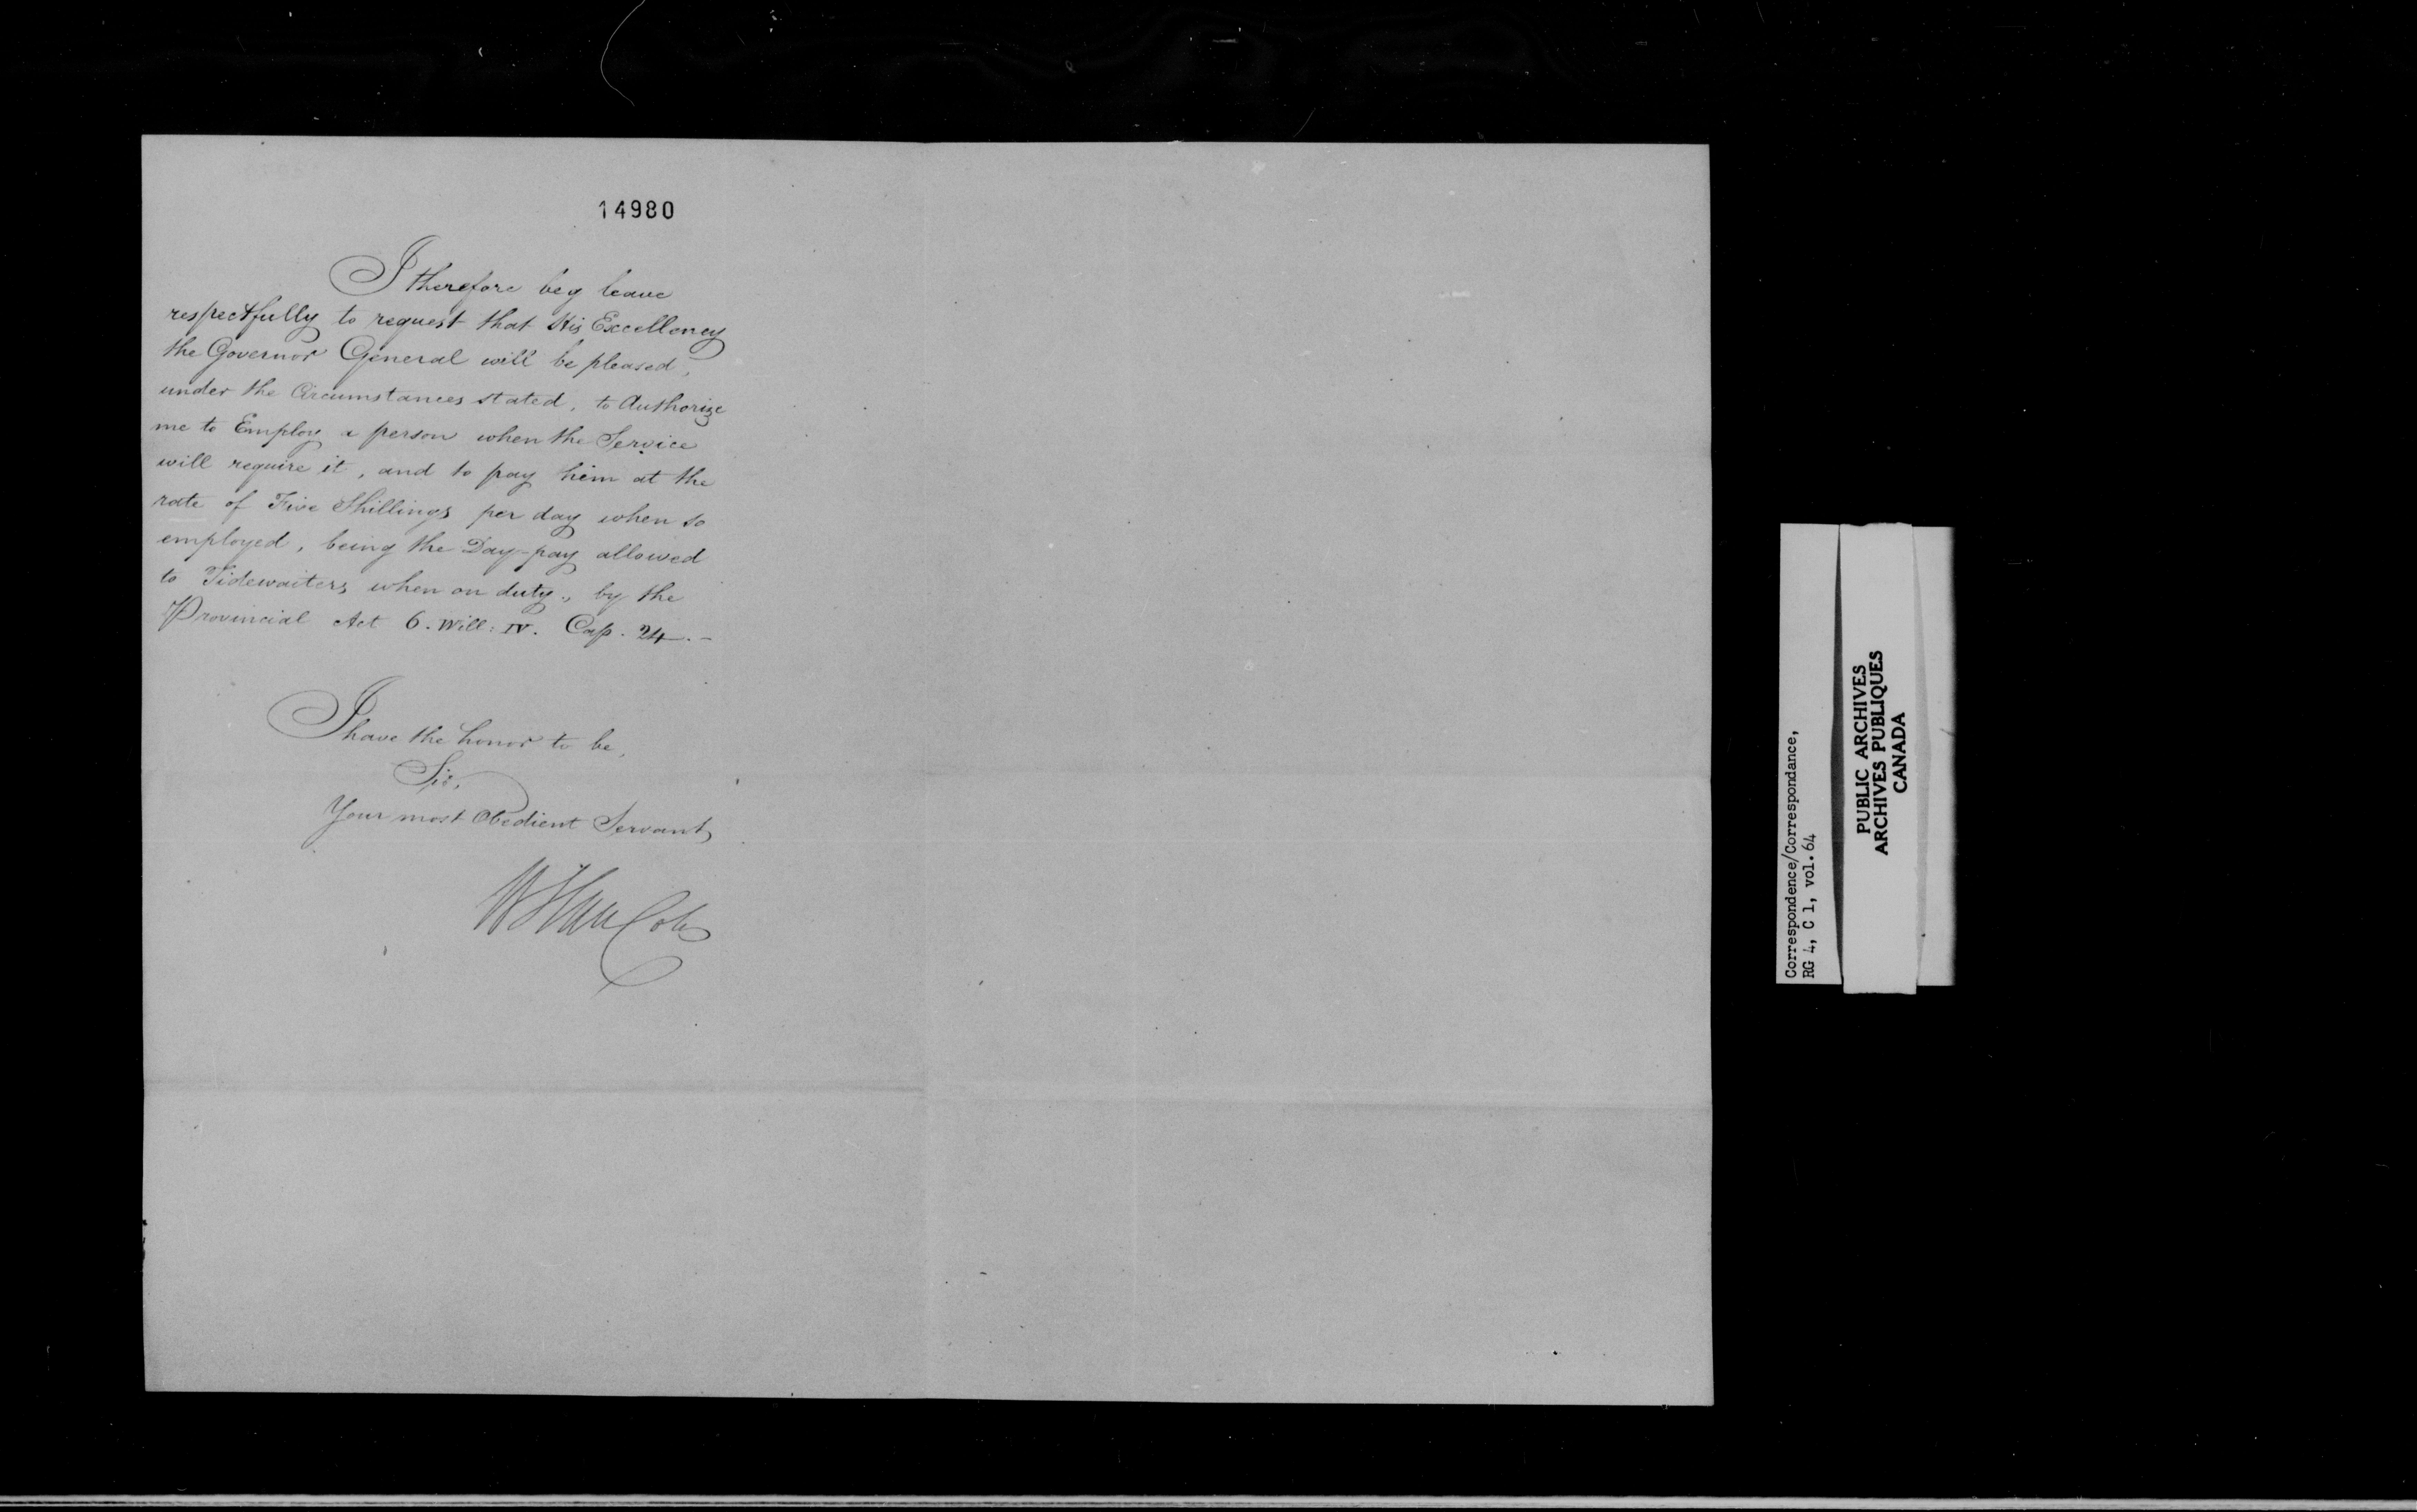 14980
I therefore beg leave
respectfully to request that His Excellency
the Governor General will be pleased,
under the Circumstances stated, to Authorize
me to Employ a person when the Service
will require it, and to pay him at the
rate of Five Shillings per day when so
employed, being the Day-pay allowed
to Tidewaiters when on duty, by the
Provincial Act 6. Will: IV. Cap. 24.-
I have the honor to be,
Sir,
Your most Obedient Servant
Correspondence/Correspondance,
RG 4, C 1, vol. 64
PUBLIC ARCHIVES
ARCHIVES PUBLIQUES
CANADA